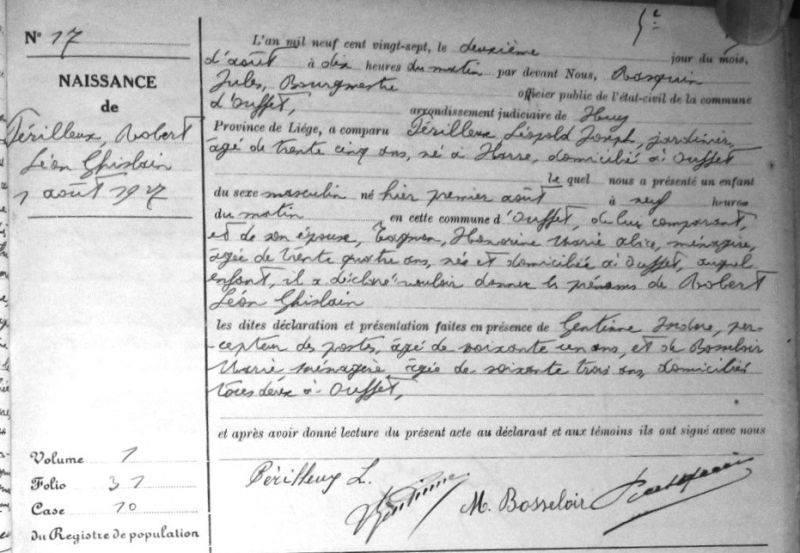 N° 17
NAISSANCE
de
Périlleux, Robert
Léon Ghislain
1 août 1927
Volume 1
Folio 31
Case 10
du Registre de population
L'an mil neuf cent vingt-sept, le deuxième jour du mois,
d'août à dix heures du matin par devant Nous, Rasquin
Jules, Bourgmestre officier public de l'état-civil de la commune
d'Ouffet, arrondissement judiciaire de Huy
Province de Liége, a comparu Périlleux Léopold Joseph, jardinier,
âgé de trente cinq ans, né à Harre, domicilié à Ouffet
le quel nous a présenté un enfant
du sexe masculin né hier premier août à neuf heures
du matin en cette commune d'Ouffet, de lui comparant,
et de son épouse, Honorine Marie Alice, ménagère,
âgée de trente quatre ans, née et domiciliée à Ouffet, auquel
enfant, il a déclaré vouloir donner les prénoms de Robert
Léon Ghislain
les dites déclaration et présentation faites en présence de Gentinne Isidore, per-
cepteur des postes, âgé de soixante un ans, et de Bosseloir
Marie, ménagère âgée de soixante trois ans, domiciliés
tous deux à Ouffet,
et après avoir donné lecture du présent acte au déclarant et aux témoins ils ont signé avec nous
Périlleux L.
Gentinne
M. Bosseloir